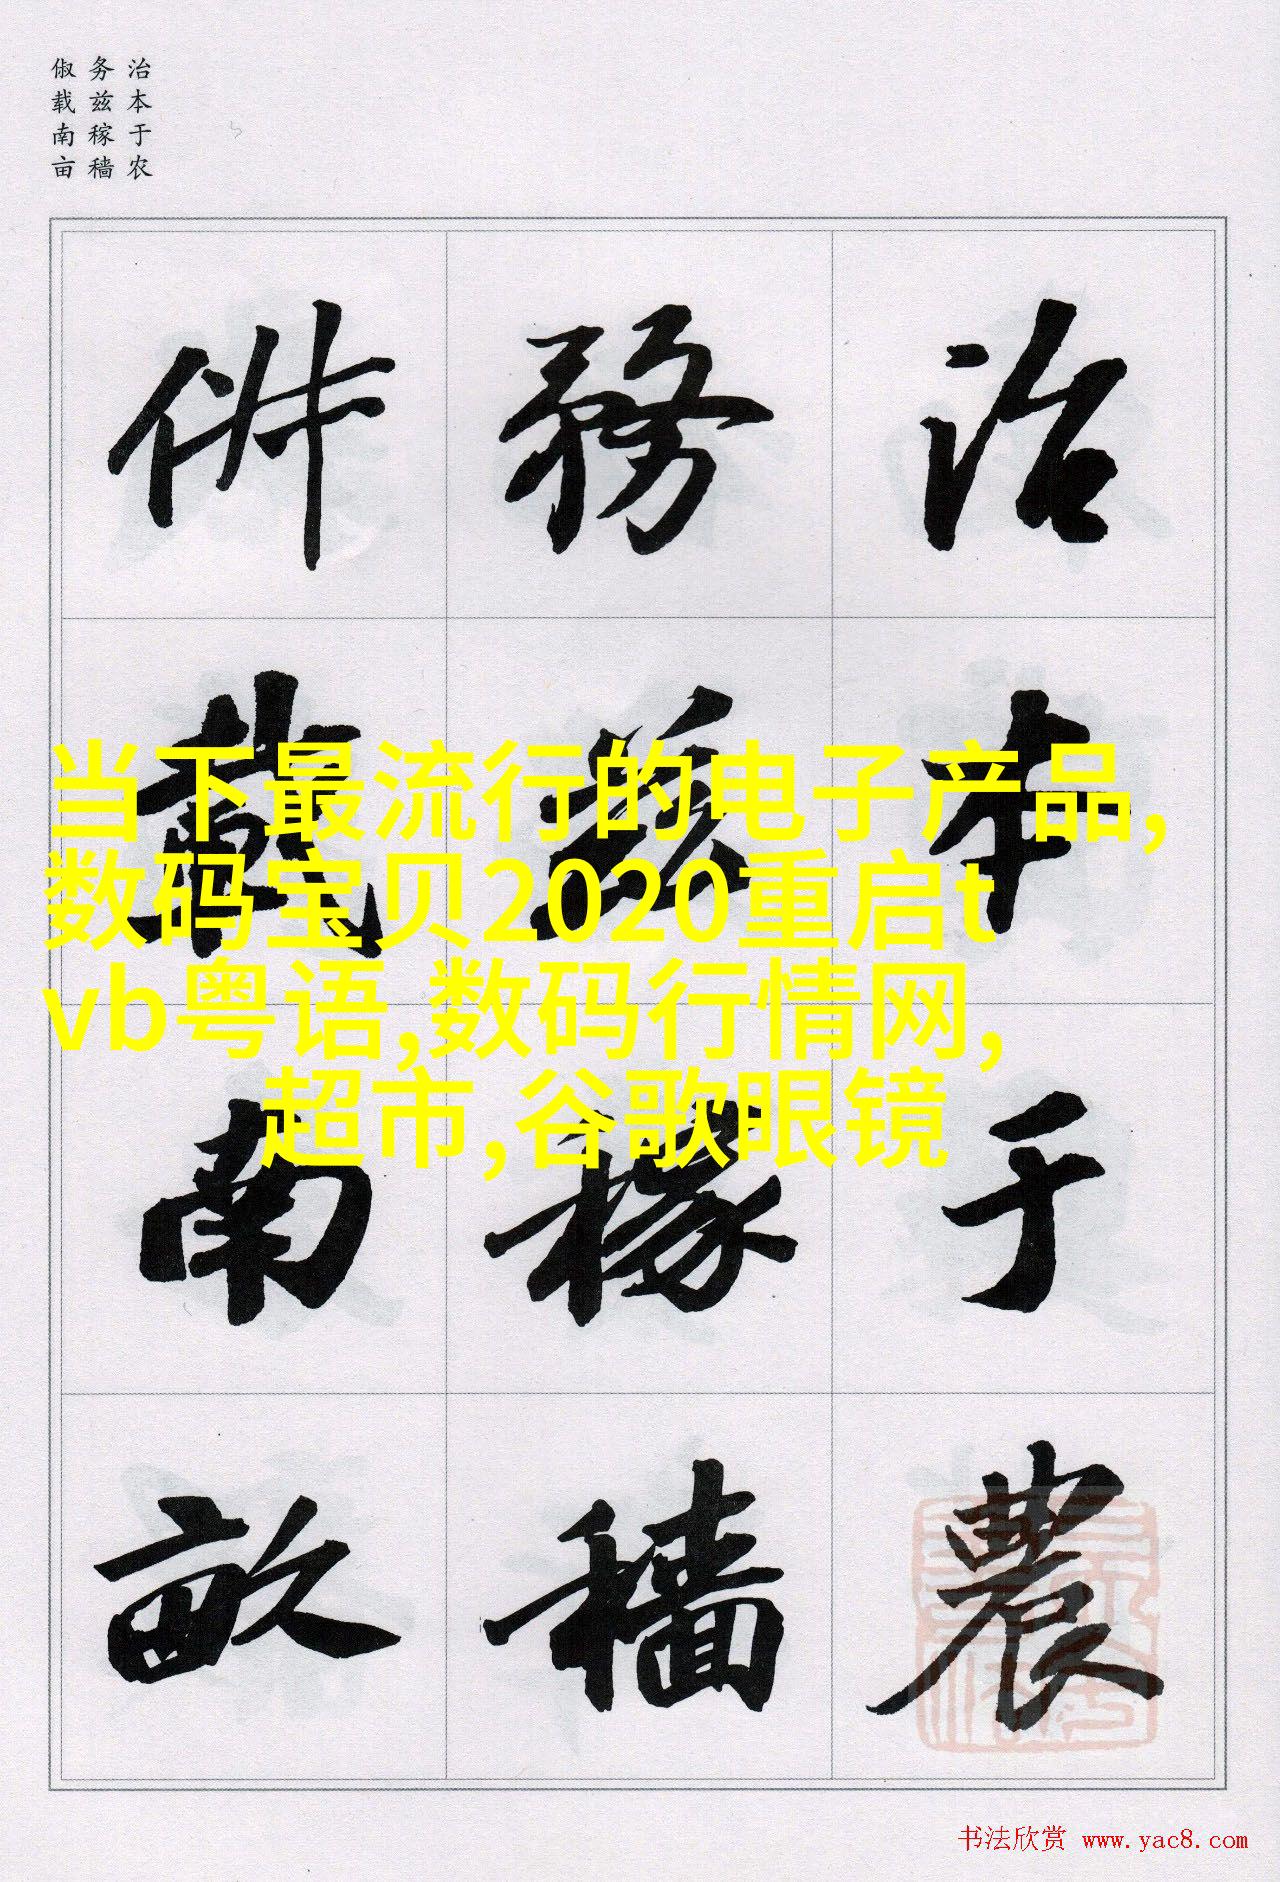 治本于农
务兹稼穑
俶载南亩
治本于農
務兹稼穡
俶載南畝
当下最流行的电子产品,
数码宝贝2020重启t
vb粤语,数码行情网,
超市,谷歌眼镜
书法欣赏 www.yac8.com